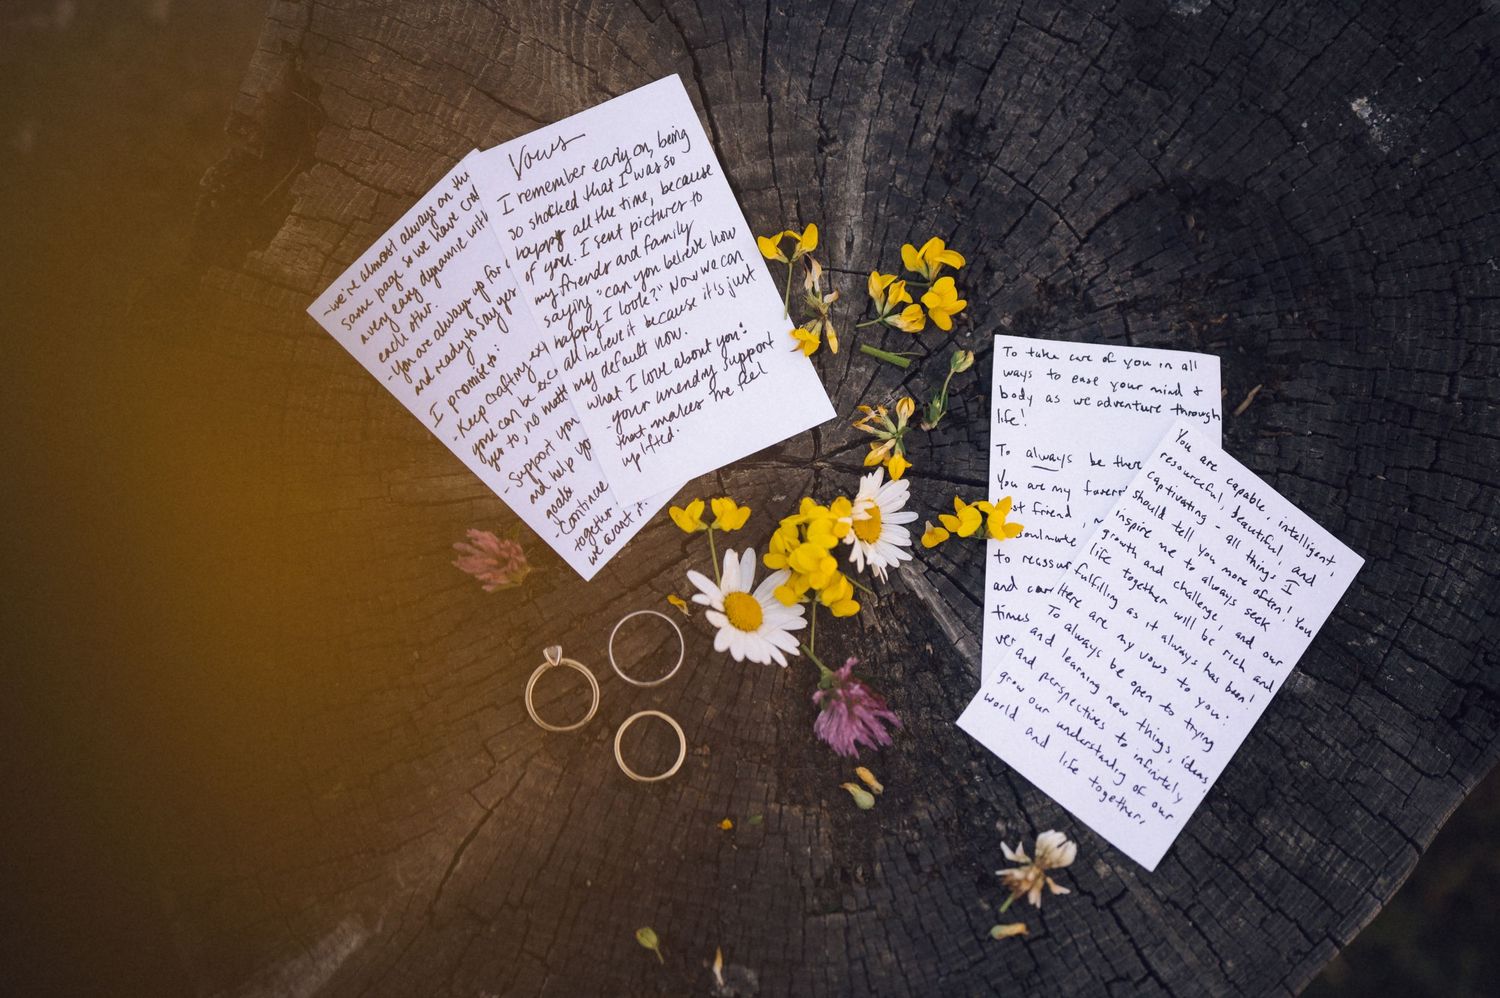 Vows
I remember early on, being
so shocked that I was so
happy all the time, because
of you. I sent pictures to
my friends and family
saying "can you believe how
happy I look?" Now we can
all believe it because it's just
my default now.
what I love about you:
- your unending support
that makes me feel
uplifted.
- we're almost always on the
same page so we have
a very easy dynamic with
each other.
- You are always up for
and ready to say yes
I promise to:
- Keep crafting
you can be
yes to, no matt
- Support you
and help you
goals
- Continue
together
we want it
To take care of you in all
ways to ease your mind &
body as we adventure through
life!
To always be there
You are my favori
st friend,
soulmate
to reassur
and
times
You are capable, intelligent,
resourceful, beautiful, and
captivating - all things I
should tell you more often! You
inspire me to always seek
growth and challenge, and our
life together will be rich and
fulfilling as it always has been!
Here are my vows to you:
To always be open to trying
and learning new things, ideas
and perspectives to infinitely
grow our understanding of our
world and life together.